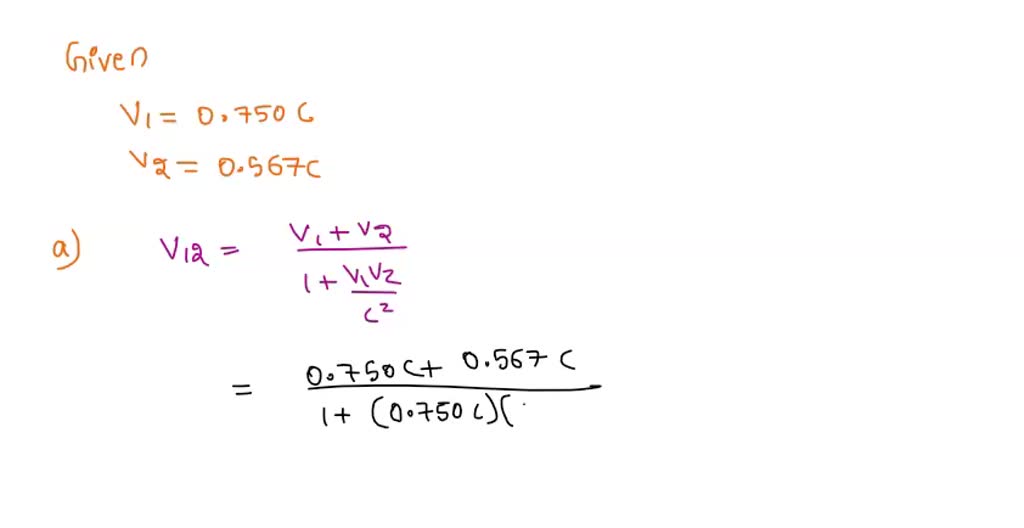 Given
V1 = 0.750 C
V2 = 0.567C
a) V12 = V1 + V2 / 1 + V1V2 / C²
= 0.750C + 0.567 C / 1 + (0.750 C)(